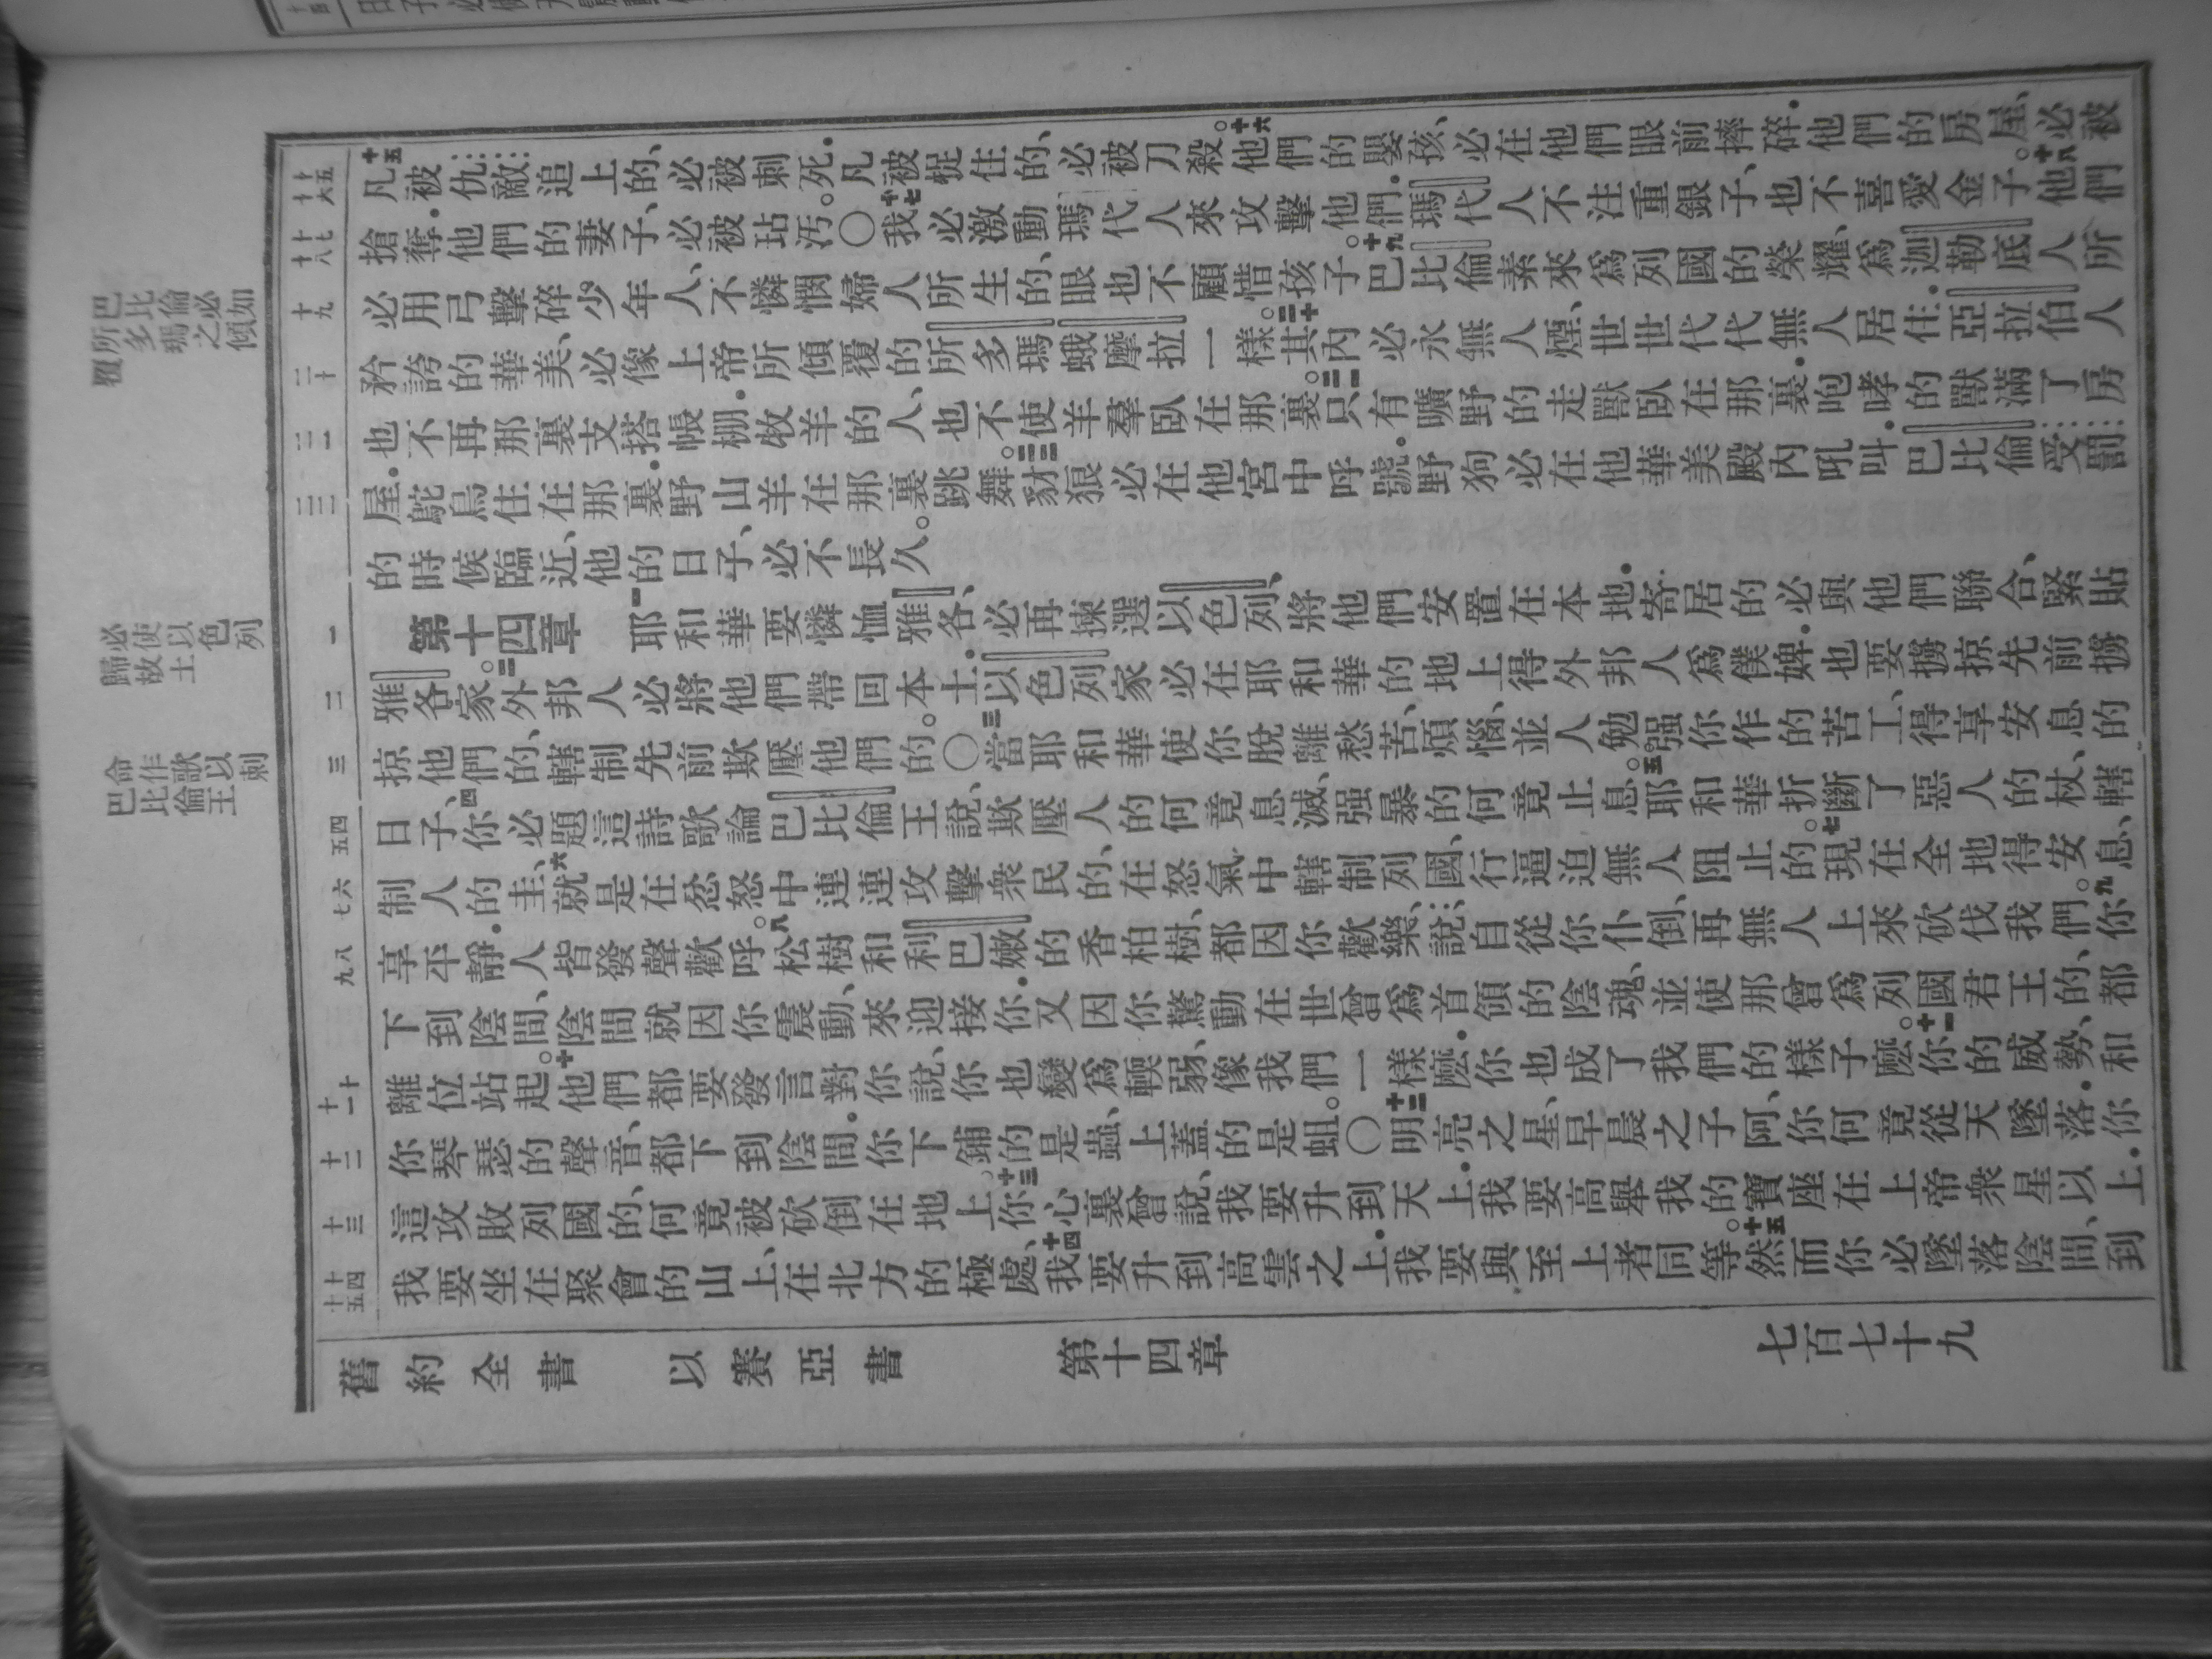 巴比倫必如
所多瑪之傾
覆
必使以色列
歸故土
命作歌以刺
巴比倫王
十五
十六
十七
十八
十九
二十
二一
二二
一
二
三
四
五
六
七
八
九
十
十一
十二
十三
十四
十五
十五凡被仇敵追上的、必被刺死.凡被捉住的、必被刀殺。十六他們的嬰孩、必在他們眼前摔碎.他們的房屋、必被
搶奪.他們的妻子、必被玷汚。○十七我必激動瑪代人來攻擊他們.瑪代人不注重銀子、也不喜愛金子。十八他們
必用弓擊碎少年人、不憐憫婦人所生的、眼也不顧惜孩子。十九巴比倫素來爲列國的榮耀、爲迦勒底人所
矜誇的華美、必像上帝所傾覆的所多瑪蛾摩拉一樣。二十其內必永無人煙、世世代代無人居住.亞拉伯人
也不再那裏支搭帳棚.牧羊的人、也不使羊羣臥在那裏。二一只有曠野的走獸臥在那裏.咆哮的獸滿了房
屋.鴕鳥住在那裏.野山羊在那裏跳舞。二二豺狼必在他宮中呼號.野狗必在他華美殿內吼叫.巴比倫受罰
的時候臨近、他的日子、必不長久。
第十四章　一耶和華要憐恤雅各、必再揀選以色列、將他們安置在本地.寄居的必與他們聯合、緊貼
雅各家。二外邦人必將他們帶回本土.以色列家必在耶和華的地上得外邦人爲僕婢.也要擄掠先前擄
掠他們的、轄制先前欺壓他們的。○三當耶和華使你脫離愁苦、煩惱、並人勉强你作的苦工、得享安息的
日子、四你必題這詩歌論巴比倫王說、欺壓人的何竟息滅、强暴的何竟止息。五耶和華折斷了惡人的杖、轄
制人的圭、六就是在忿怒中連連攻擊衆民的、在怒氣中轄制列國、行逼迫無人阻止的。七現在全地得安息、
享平靜.人皆發聲歡呼。八松樹和利巴嫩的香柏樹、都因你歡樂、說、自從你仆倒、再無人上來砍伐我們。九你
下到陰間、陰間就因你震動、來迎接你.又因你驚動在世曾爲首領的陰魂、並使那曾爲列國君王的、都
離位站起。十他們都要發言對你說、你也變爲輭弱、像我們一樣麽.你也成了我們的樣子麽。十一你的威勢、和
你琴瑟的聲音、都下到陰間.你下鋪的是蟲、上蓋的是蛆。○十二明亮之星、早晨之子阿、你何竟從天墜落.你
這攻敗列國的、何竟被砍倒在地上。十三你心裏曾說、我要升到天上.我要高舉我的寶座在上帝衆星以上.
我要坐在聚會的山上、在北方的極處、十四我要升到高雲之上.我要與至上者同等。十五然而你必墜落陰間、到
舊約全書　以賽亞書　第十四章　七百七十九